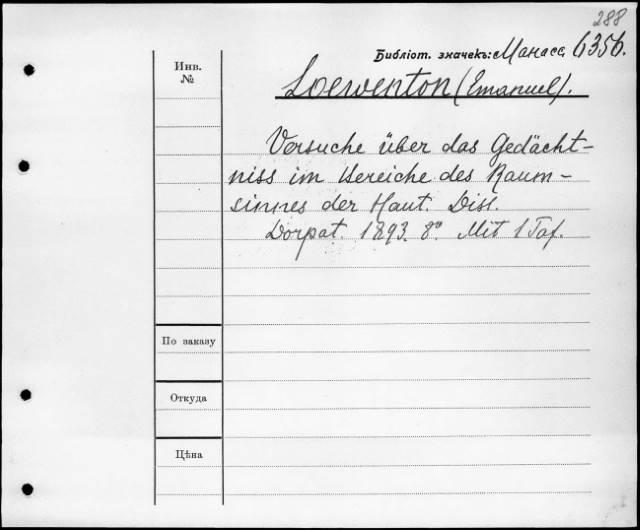 288
Библіот. значекъ: Манасс. 6356.
Инв.
№
Loewenton (Emanuel).
Versuche über das Gedächt-
niss im Bereiche des Raum-
sinnes der Haut. Diss.
Dorpat. 1893. 8º. Mit 1 Taf.
По заказу
Откуда
Цѣна